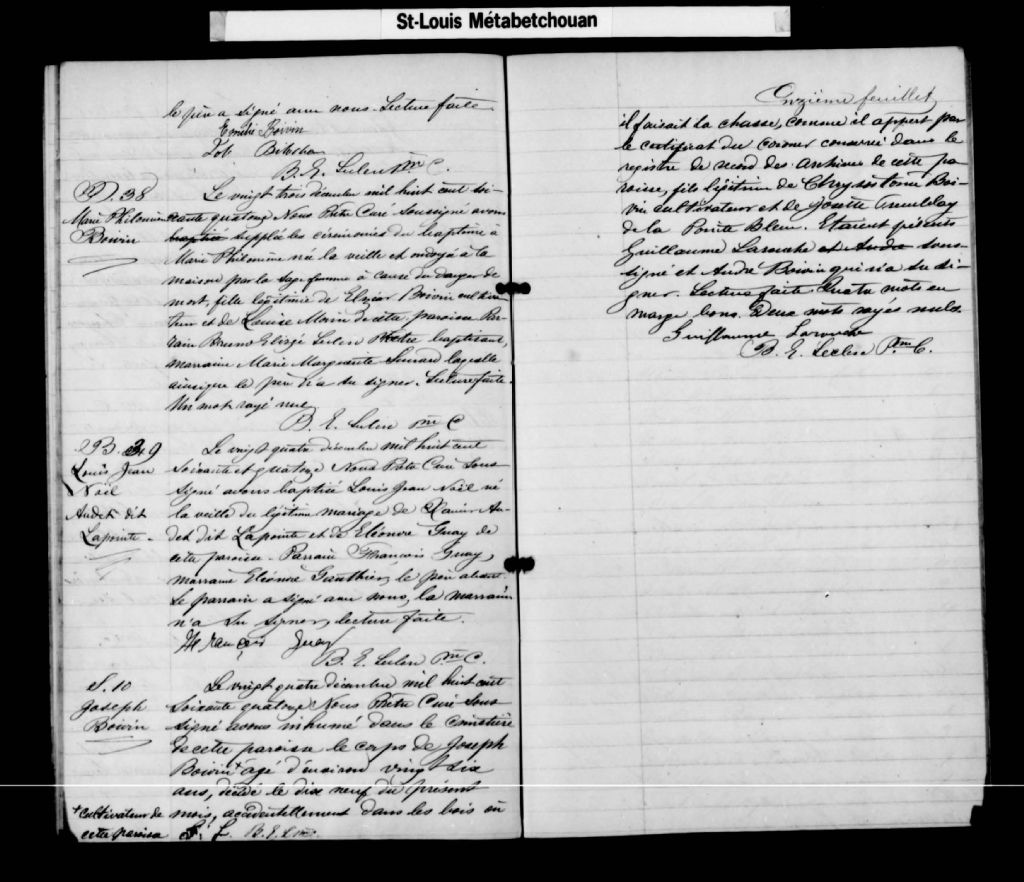 St-Louis Métabetchouan
le père a signé avec nous. Lecture faite
Emilie Boivin
B. E. Leclerc Ptre C.
B. 38
Marie Philomène
Boivin
Le vingt trois décembre mil huit cent soi-
xante quatorze Nous Prêtre Curé Soussigné avons
baptisé suppléé les cérémonies du baptême à
Marie Philomène née la veille et ondoyée à la
maison par la sage femme à cause du danger de
mort, fille légitime de Elzéar Boivin cultiva-
teur et de Louise Morin de cette paroisse. Par-
rain Bruno Elisée Leclerc Prêtre baptisant,
marraine Marie Marguerite Simard laquelle
ainsi que le père n'a su signer. Lecture faite.
Un mot rayé nul.
B. E. Leclerc Ptre C
B. 39
Louis Jean
Noël
Audet dit
Lapointe
Le vingt quatre décembre mil huit cent
soixante et quatorze Nous Prêtre Curé Sous-
signé avons baptisé Louis Jean Noël né
la veille du légitime mariage de Xavier Au-
det dit Lapointe et de Eléonore Guay de
cette paroisse. Parrain François Guay,
marraine Eléonore Gauthier, le père absent.
Le parrain a signé avec nous, la marraine
n'a su signer, lecture faite.
François Guay
B. E. Leclerc Ptre C.
S. 10
Joseph
Boivin
Le vingt quatre décembre mil huit cent
soixante quatorze Nous Prêtre Curé Sous-
signé avons inhumé dans le cimetière
de cette paroisse le corps de Joseph
Boivin + agé d'environ vingt six
ans, décédé le dix neuf du présent
mois, accidentellement dans les bois où
+ cultivateur de
cette paroisse
Onzième feuillet
il faisait la chasse, comme il appert par
le certificat du Coroner conservé dans le
registre de record des archives de cette pa-
roisse, fils légitime de Chrysostome Boi-
vin cultivateur et de Josette
de la Pointe Bleue. Etaient présents
Guillaume Larouche et André sous-
signé et André Boivin qui n'a su si-
gner. Lecture faite. Quatre mots en
marge bons. Deux mots rayés nuls.
Guillaume Larouche
B. E. Leclerc Ptre C.